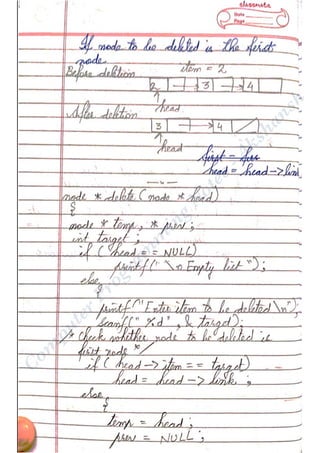 classmate
Date
Page
If node to be deleted is the first
node
Before deletion item = 2
2 3 4
head
After deletion
3 4
head
first = fir
head = head->link
node * delete (node * head)
{
node * temp, * prev;
int target;
if (head == NULL)
printf("\n Empty list");
else
{
printf("Enter item to be deleted \n");
scanf("%d", & target);
/* Check whether node to be deleted is
first node */
if (head -> item == target)
head = head -> link;
else
{
temp = head;
prev = NULL;